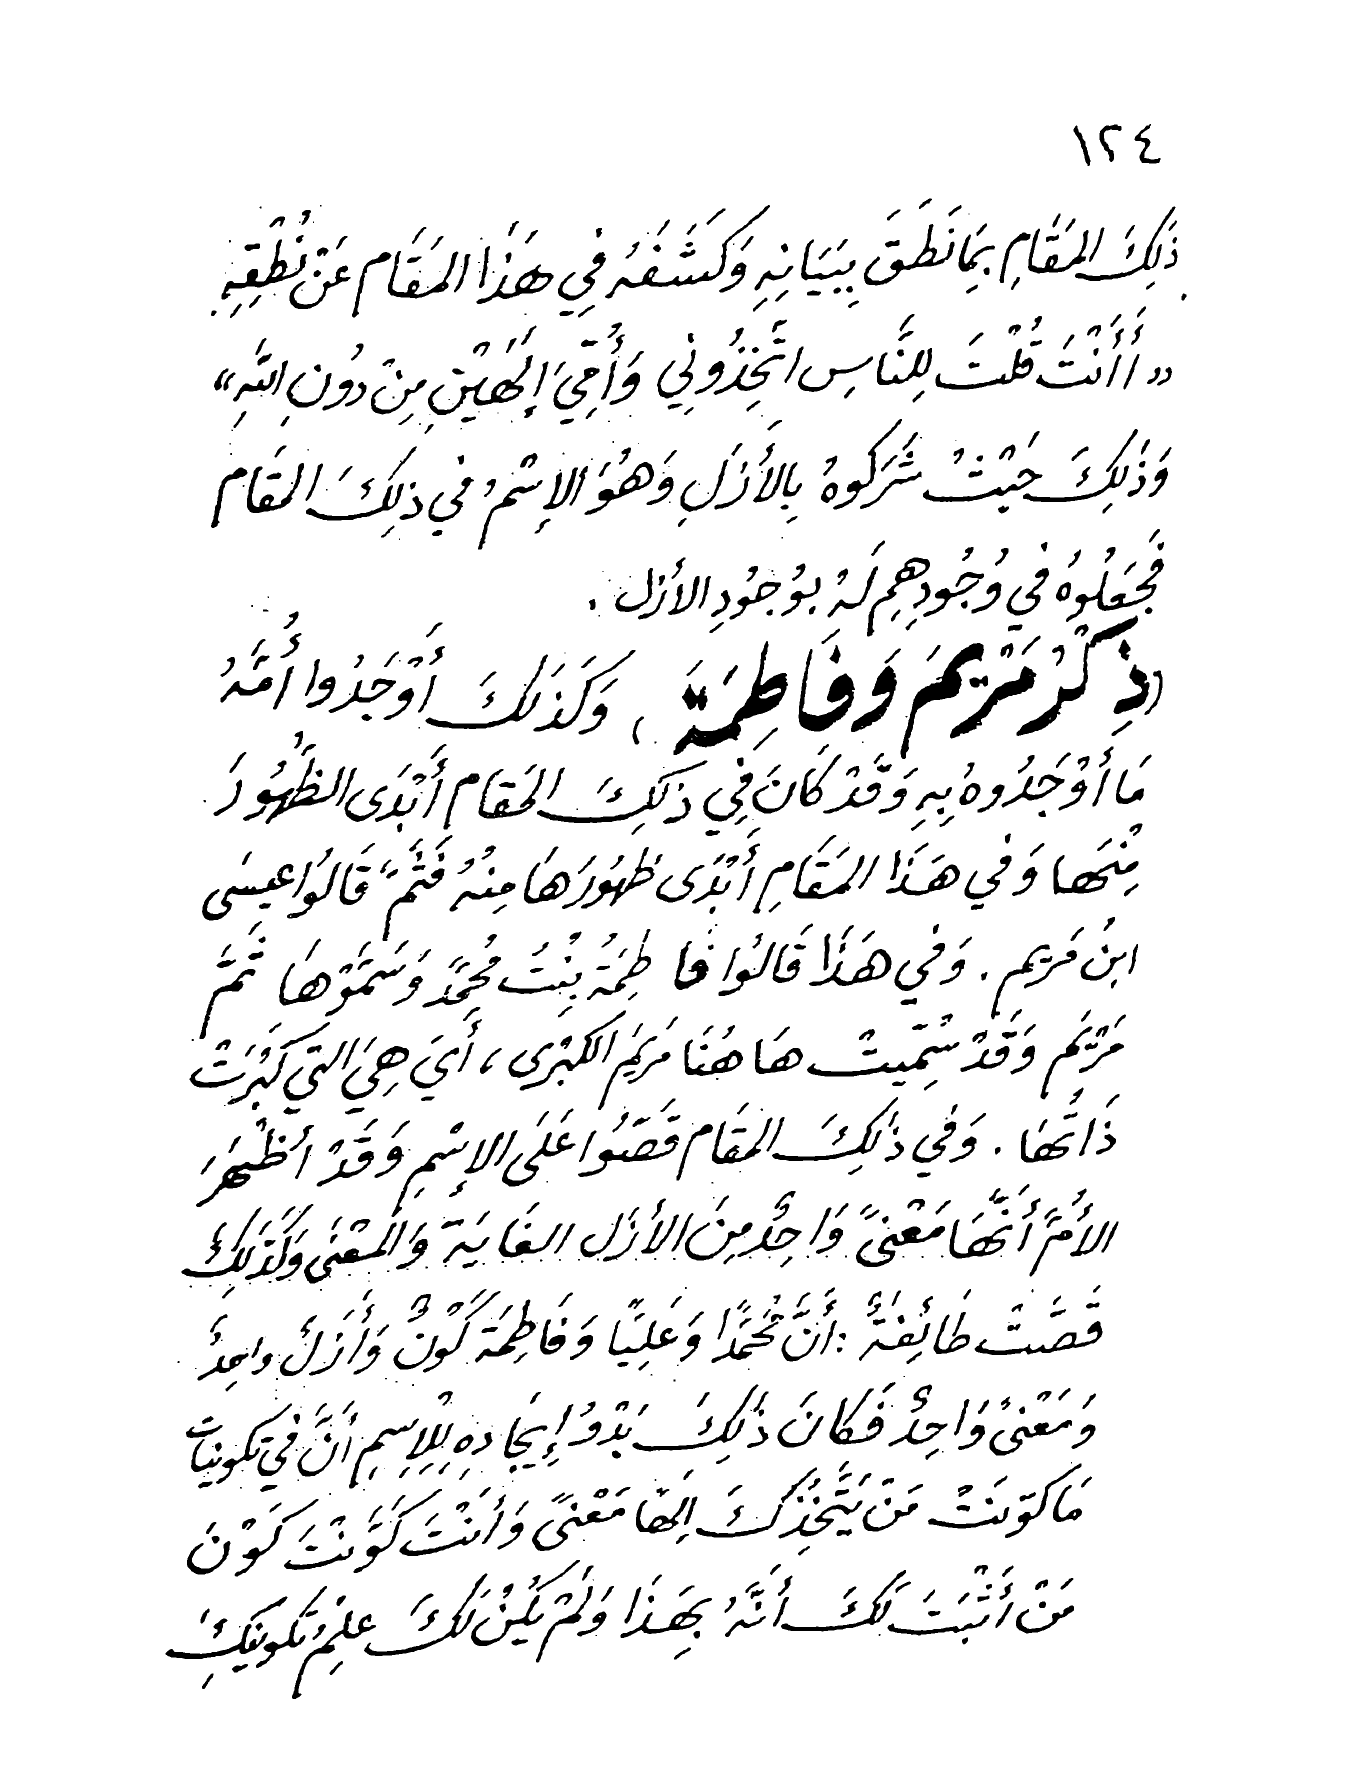 ١٢٤
ذَلِكَ المَقَامِ بِمَا نَطَقَ بِبَيَانِهِ وَكَشَفَهُ فِي هَذَا المَقَامِ عَنْ نُطْقِهِ
« أَأَنْتَ قُلْتَ لِلنَّاسِ اتَّخِذُونِي وَأُمِّيَ إِلَهَيْنِ مِنْ دُونِ اللهِ »
وَذَلِكَ حَيْثُ شَرَكُوهُ بِالأَزَلِ وَهُوَ الإِسْمُ في ذلِكَ المَقَام
فَجَعَلُوهُ في وُجُودِهِم لَهُ بوُجُودِ الأزل .
(ذِكْرُ مَرْيَمَ وَفَاطِمَةَ) وَكَذَلكَ أَوْجَدُوا أُمَّهُ
مَا أوْجَدُوهُ بِهِ وَقَدْ كَانَ فِي ذَلكَ المَقَامِ أَبْدَى الظُّهُورَ
مِنْهَا وَفي هَذَا المَقَامِ أَبْدَى ظهُورَهَا مِنْهُ فَثَمَّ قَالُوا عيسَى
ابنُ مَريم . وَفي هَذَا قَالُوا فَاطِمَةُ بِنْتُ مُحَمَّدٍ وَسَمَّوْهَا ثَمَّ
مَرْيَم وَقَدْ سُمِّيتْ هَا هُنَا مَريَمَ الكبْرى ، أَيَ هِيَ التي كَبُرَتْ
ذَاتُهَا . وَفي ذَلِكَ المقَام قَصَّوُا عَلَى الإسْمِ وَقَدْ أظْهَرَ
الأمُّ أنَّهَا مَعْنىً وَاحِدٌ مِنَ الأزَل الغَايَة وَالمعْنَى وَكَذَلِكَ
قَصَّتْ طَائِفَةٌ : أنَّ مُحَمَّدًا وَعَلِيًّا وَفَاطِمَة كَوْنٌ وَأَزَلٌ واحِدٌ
وَمَعْنىً وَاحِدٌ فَكانَ ذَلِكَ بَدْوُ إِيجَادِهِ لِلْإِسِمِ أنَّ في تكوينات
مَا كوّنتْ مَنْ يَتَّخِذُكَ إلهًا مَعْنىً وَأنتَ كَوَّنْتَ كَوْنَ
مَنْ أَثْبَتَ لَكَ أَنَّهُ بِهَذَا وَلَمْ يَكُنْ لَكَ عِلْمُ